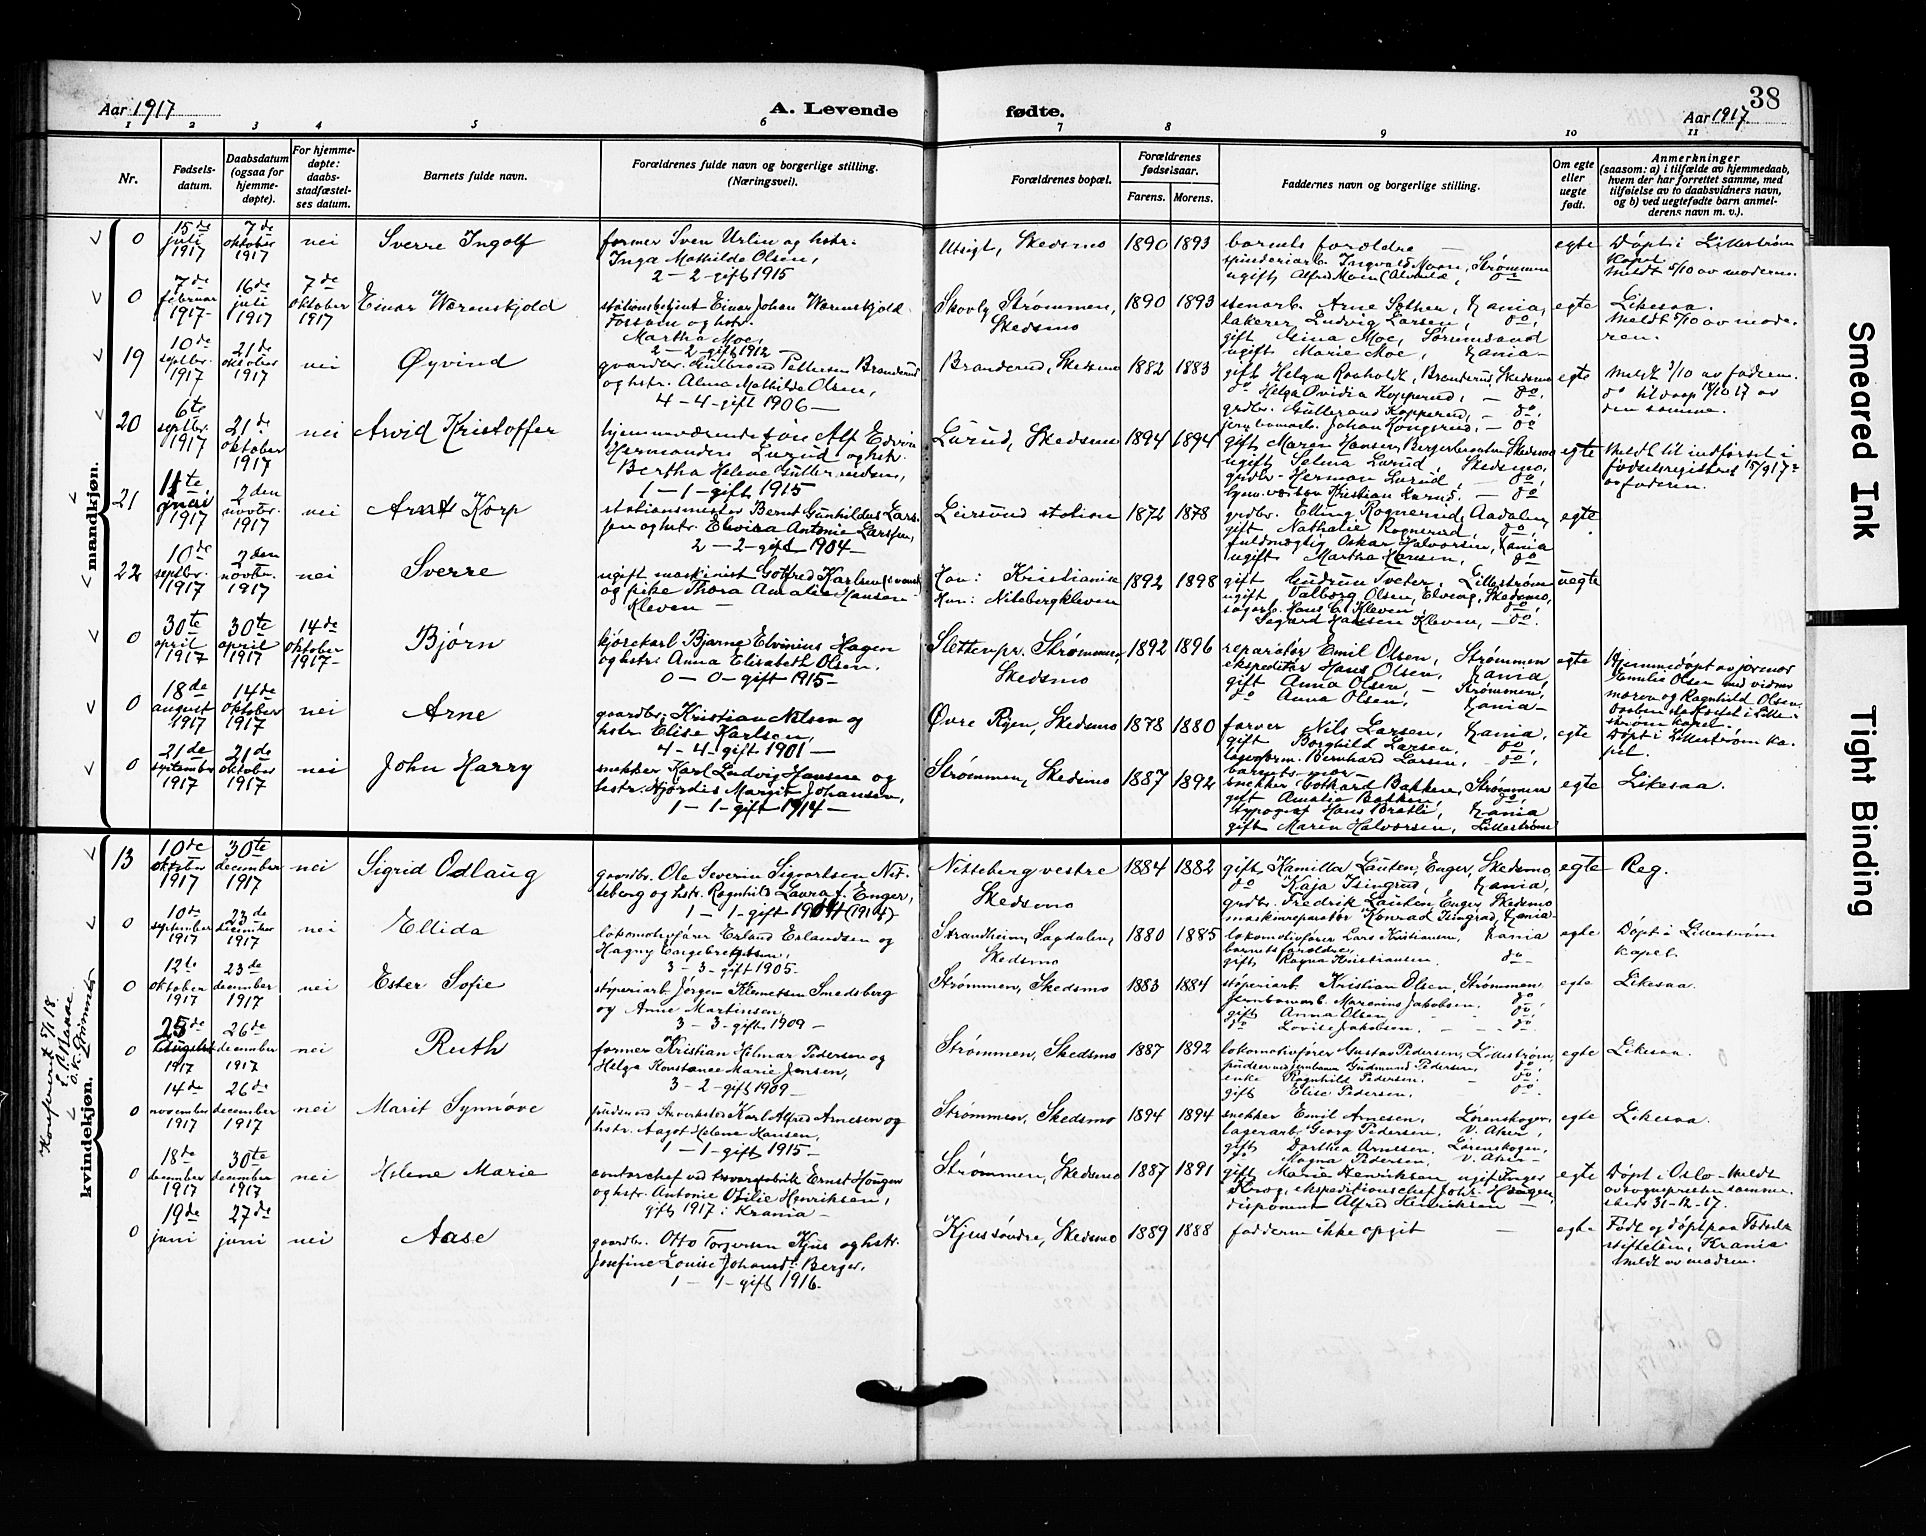 Aar 1917
A. Levende
fødte.
Aar 1917
38
1 2 3 4 5 6 7 8 9 10 11
Nr.
Fødsels-
datum.
Daabsdatum
(ogsaa for
hjemme-
døpte).
For hjemme-
døpte:
daabs-
stadfæstel-
ses datum.
Barnets fulde navn.
Forældrenes fulde navn og borgerlige stilling.
(Næringsvei).
Forældrenes bopæl.
Forældrenes
fødselsaar.
Farens. Morens.
Faddernes navn og borgerlige stilling.
Om egte
eller
uegte
født.
Anmerkninger
(saasom: a) i tilfælde av hjemmedaab,
hvem der har forrettet samme, med
tilføielse av to daabsvidners navn,
og b) ved uegtefødte barn anmel-
derens navn m. v.).
mandkjøn.
0
15de
juli
1917
7de
oktober
1917
nei
Sverre Ingolf
former Sven Urlin og hstr.
Inga Mathilde Olsen,
2 - 2 - gift 1915
Utsigt, Skedsmo
1890 1893
barnets forældre
spinderiarb. Ingvald Moen, Strømmen
egte
Døpt i Lillestrøm
kapel
meldt 5/10 av moderen.
0
7de
februar
1917
16de
juli
1917
7de
oktober
1917
Einar Warenskjold
stationsbetjent Einar Johan Warenskjold
Fossum og hstr.
Martha Moe,
2 - 2 - gift 1912
Skovly, Strømmen,
Skedsmo
1890 1893
stenarb. Arne Sæther, Kania,
lakerer Ludvig Larsen, do,
gift Gina Moe, Sørumsand
ugift Marie Moe, Kania
egte
Likesaa.
meldt 5/10 av mode-
ren.
19
10de
septbr.
1917
21de
oktober
1917
nei
Øyvind
gaardbr. Gulbrand Pettersen Branderud
og hstr. Alma Mathilde Olsen,
4 - 4 - gift 1906
Branderud, Skedsmo
1882 1883
gift Helga Raaholdt, Branderud, Skedsmo
do Helga Ovidia Kopperud, - do,
grdbr. Gulbrand Kopperud, - do
jernbanearb. Johan Kongsrud, - do
egte
meldt 2/10 av faderen.
do til daap 18/10 17 av
den samme.
20
6te
septbr.
1917
21de
oktober
1917
nei
Arvid Kristoffer
hjemmeværende søn Alf Edvin
Hermansen Lurud og hstr.
Bertha Helene Gulbrandsen,
1 - 1 - gift 1915
Lurud, Skedsmo
1894 1894
gift Maren Hansen, Skedsmo
ugift Selma Lurud, Skedsmo,
grdbr. Herman Lurud, - do
Kristian Lurud. - do
egte
meldt til indførsel i
fødselsregistret 15/9 17
av faderen.
21
11te
mai
1917
2den
novbr.
1917
nei
Arnt Korp
stationsmester Bernt Gunhildus Lars-
sen og hstr. Elvira Antonie Larssen,
2 - 2 - gift 1904
Leirsund station
1872 1878
grdbr. Elling Rognerud, Aadalen,
gift Nathalie Rognerud, do,
fuldmægtig Oskar Halvorsen, Kania
ugift Martha Hansen, do
egte
22
10de
septbr.
1917
2den
novbr.
1917
nei
Sverre
ugift maskinist Gotfred Karlsen
og pike Thora Amalie Hansen
Kleven
Han: Kristiania
Hun: Nitebergkleven
1892 1898
gift Gudrun Tveter, Lillestrøm
ugift Valborg Olsen, Elveng, Skedsmo,
sagarb. Hans C. Kleven, do,
Segard Hansen Kleven, - do.
uegte
0
30te
april
1917
30te
april
1917
14de
oktober
1917
Bjørn
kjørekarl Bjarne Elvinius Hagen
og hstr. Anna Elisabeth Olsen.
0 - 0 - gift 1915
Sletten pr. Strømmen,
Skedsmo
1892 1896
reparatør Emil Olsen, Strømmen
ekspeditør Hans Olsen, Kania,
gift Anna Olsen, - Strømmen,
do Anna Olsen, Kania
egte
Hjemmedøpt av jormor
Emilie Olsen med vidner
moren og Ragnhild Olsen
Daaben stadfæstet i Lille-
strøm kapel
0
18de
august
1917
14de
oktober
1917
nei
Arne
gaardbr. Kristian Nilsen og
hstr. Elise Karlsen,
4 - 4 - gift 1901
Øvre Ryen, Skedsmo
1878 1880
farver Nils Larsen, Kania,
gift Borghild Larsen, do,
Bernhard Larsen, - do,
barnets mor
egte
Døpt i Lillestrøm ka-
pel.
0
21de
september
1917
21de
oktober
1917
nei
John Harry
snekker Karl Ludvig Hansen og
hstr. Hjørdis Margit Johansen,
1 - 1 - gift 1914
Strømmen, Skedsmo
1887 1892
snekker Gothard Bakken, Strømmen
gift Amalie Bakken, do,
typograf Hans Bratli, Kania
gift Maren Halvorsen, Lillestrøm
egte
Likesaa.
kvindekjøn.
Konferert 5/1 18
13
10de
oktober
1917
30te
december
1917
nei
Sigrid Odlaug
gaardbr. Ole Severin Sigvartsen Nit-
teberg og hstr. Ragnhild Laura f. Enger,
1 - 1 - gift 1914 (1914)
Nitteberg vestre
Skedsmo
1884 1882
gift Kamilla Lauten, Enger, Skedsmo,
do Kaja Tsingrud, Kania,
grdbr. Fredrik Lauten, Enger, Skedsmo
maskinreparatør Konrad Tsingrud, Kania
egte
Reg.
0
10de
september
1917
23de
december
1917
nei
Ellida
lokomotivfører Erland Erlandsen og
Hagny Engebretsen,
3 - 3 - gift 1905
Strandheim, Sagdalen,
Skedsmo
1880 1885
lokomotivfører Lars Kristiansen, Kania
barnets forældre,
gift Ragna Kristiansen. do
egte
Døpt i Lillestrøm
kapel
0
12te
oktober
1917
23de
december
1917
nei
Ester Sofie
støperiarb. Jørgen Klemetsen Smedsberg
og Anne Martinsen,
3 - 3 - gift 1909
Strømmen, Skedsmo
1883 1884
støperiarb. Kristian Olsen, Strømmen
Jernbanearb. Marenius Jakobsen. do
gift Anna Olsen do,
do Lovise Jakobsen. - do.
egte
Likesaa.
0
25de
august
1917
26de
december
1917
nei
Ruth
former Kristian Hilmar Pedersen og
Helga Konstance Marie Jensen,
3 - 2 - gift 1909
Strømmen, Skedsmo
1887 1892
lokomotivfører Gustav Pedersen, Lillestrøm,
pudser ved jernbanen Gudmund Pedersen, do,
enke Ragnhild Pedersen. do,
gift Elise Pedersen. do
egte
Likesaa.
0
14de
november
1917
26de
december
1917
nei
Marit Synnøve
Karl Alfred Arnesen og
hstr. Aagot Helene Hansen,
1 - 1 - gift 1915
Strømmen, Skedsmo
1894 1894
snekker Emil Arnesen, Lørenskogen,
lagerarb. Georg Pedersen, V. Aker,
gift Dorthea Arnesen Lørenskogen,
do Magna Pedersen, V. Aker
egte
Likesaa.
0
18de
december
1917
30te
december
1917
nei
Helene Marie
contorchef ved Ernst Haugen
og hstr. Antonie Otilie Henriksen,
gift 1917 i Krania
Strømmen, Skedsmo
1887 1891
gift Marie Henriksen, ugift Inger
Krog, ekspeditionschef Johs. Haugen,
disponent Alfred Henriksen
egte
Døpt i Oslo - meldt
av sognepresten samme-
steds 31-12-17.
0
19de
juni
27de
juni
nei
Aase
gaardbr. Otto Torgersen Kjus og hstr.
Josefine Louise Johansd. Berger,
1 - 1 - gift 1916.
Kjus søndre, Skedsmo
1889 1888
fadderne ikke opgit
egte
Født og døpt paa Fødsels-
stiftelsen, Krania
meldt av modren.
Smeared Ink
Tight Binding